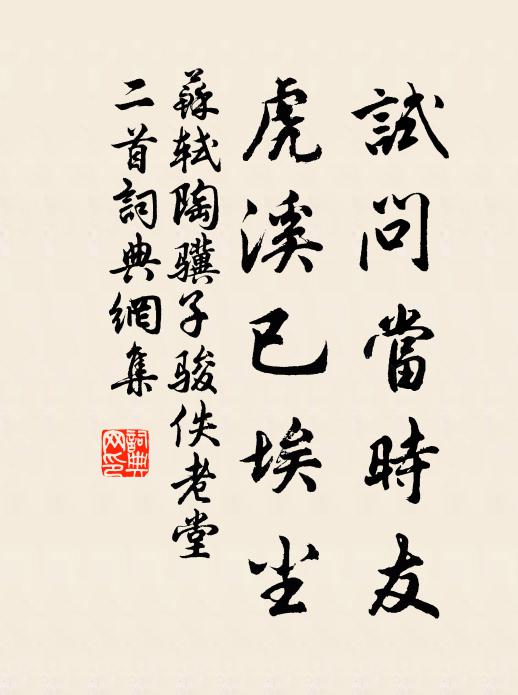 試問當時友
虎溪已埃尘
蘇轼陶驥子駿佚老堂
二首詞典網集
詞典網印